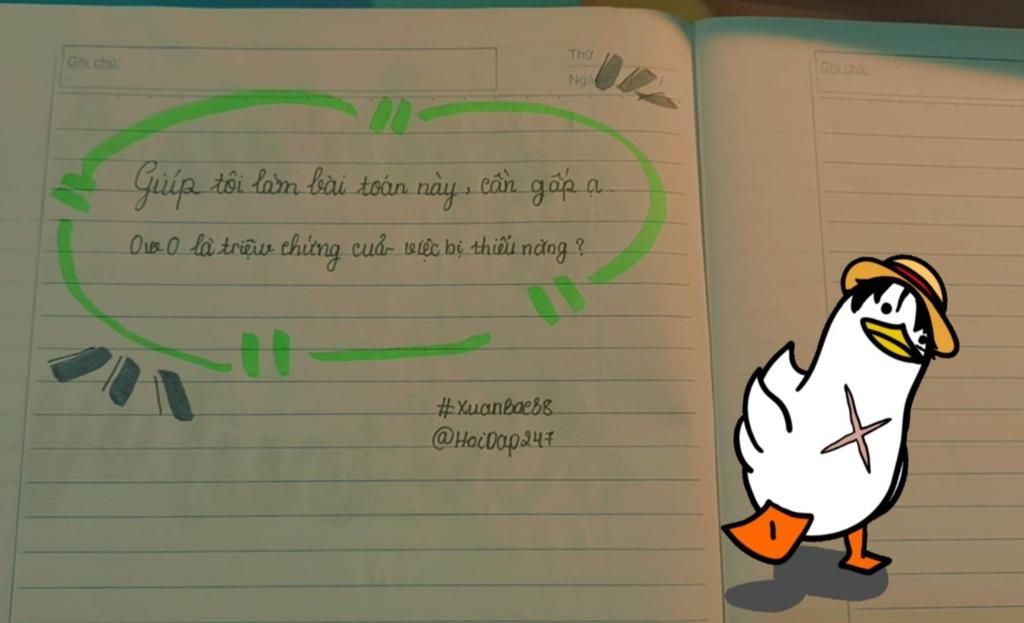 Ghi chú:
Thứ
Giúp tôi làm bài toán này, cần gấp ạ.
OwO là triệu chứng cuả việc bị thiểu năng?
#XuanBac88
@HoiDap247
Ghi chú: